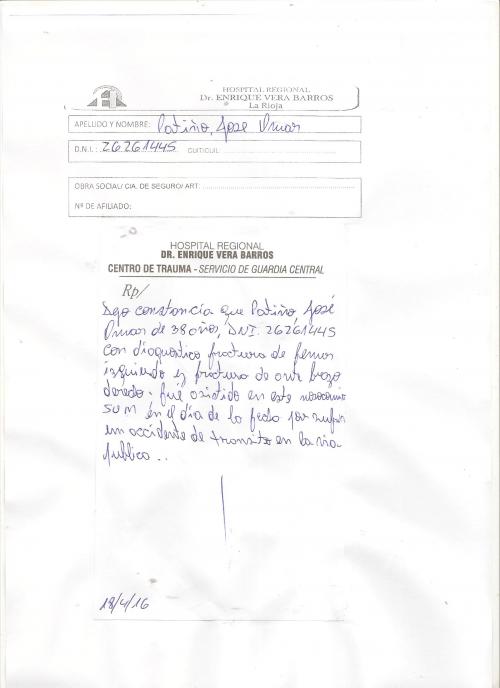 HOSPITAL REGIONAL
Dr. ENRIQUE VERA BARROS
La Rioja
APELLIDO Y NOMBRE: Patiño, José Omar
D.N.I.: 26261445 CUIT/CUIL:
OBRA SOCIAL/ CIA. DE SEGURO/ ART:
Nº DE AFILIADO:
HOSPITAL REGIONAL
DR. ENRIQUE VERA BARROS
CENTRO DE TRAUMA - SERVICIO DE GUARDIA CENTRAL
Rp/
Dejo constancia que Patiño, José
Omar de 38 años, DNI. 26261445
con diagnostico fractura de femur
izquierdo y fractura de ante brazo
derecho. fué asistido en este nosocomio
en el día de la fecha por sufrir
un accidente de transito en la via
publica..
18/4/16